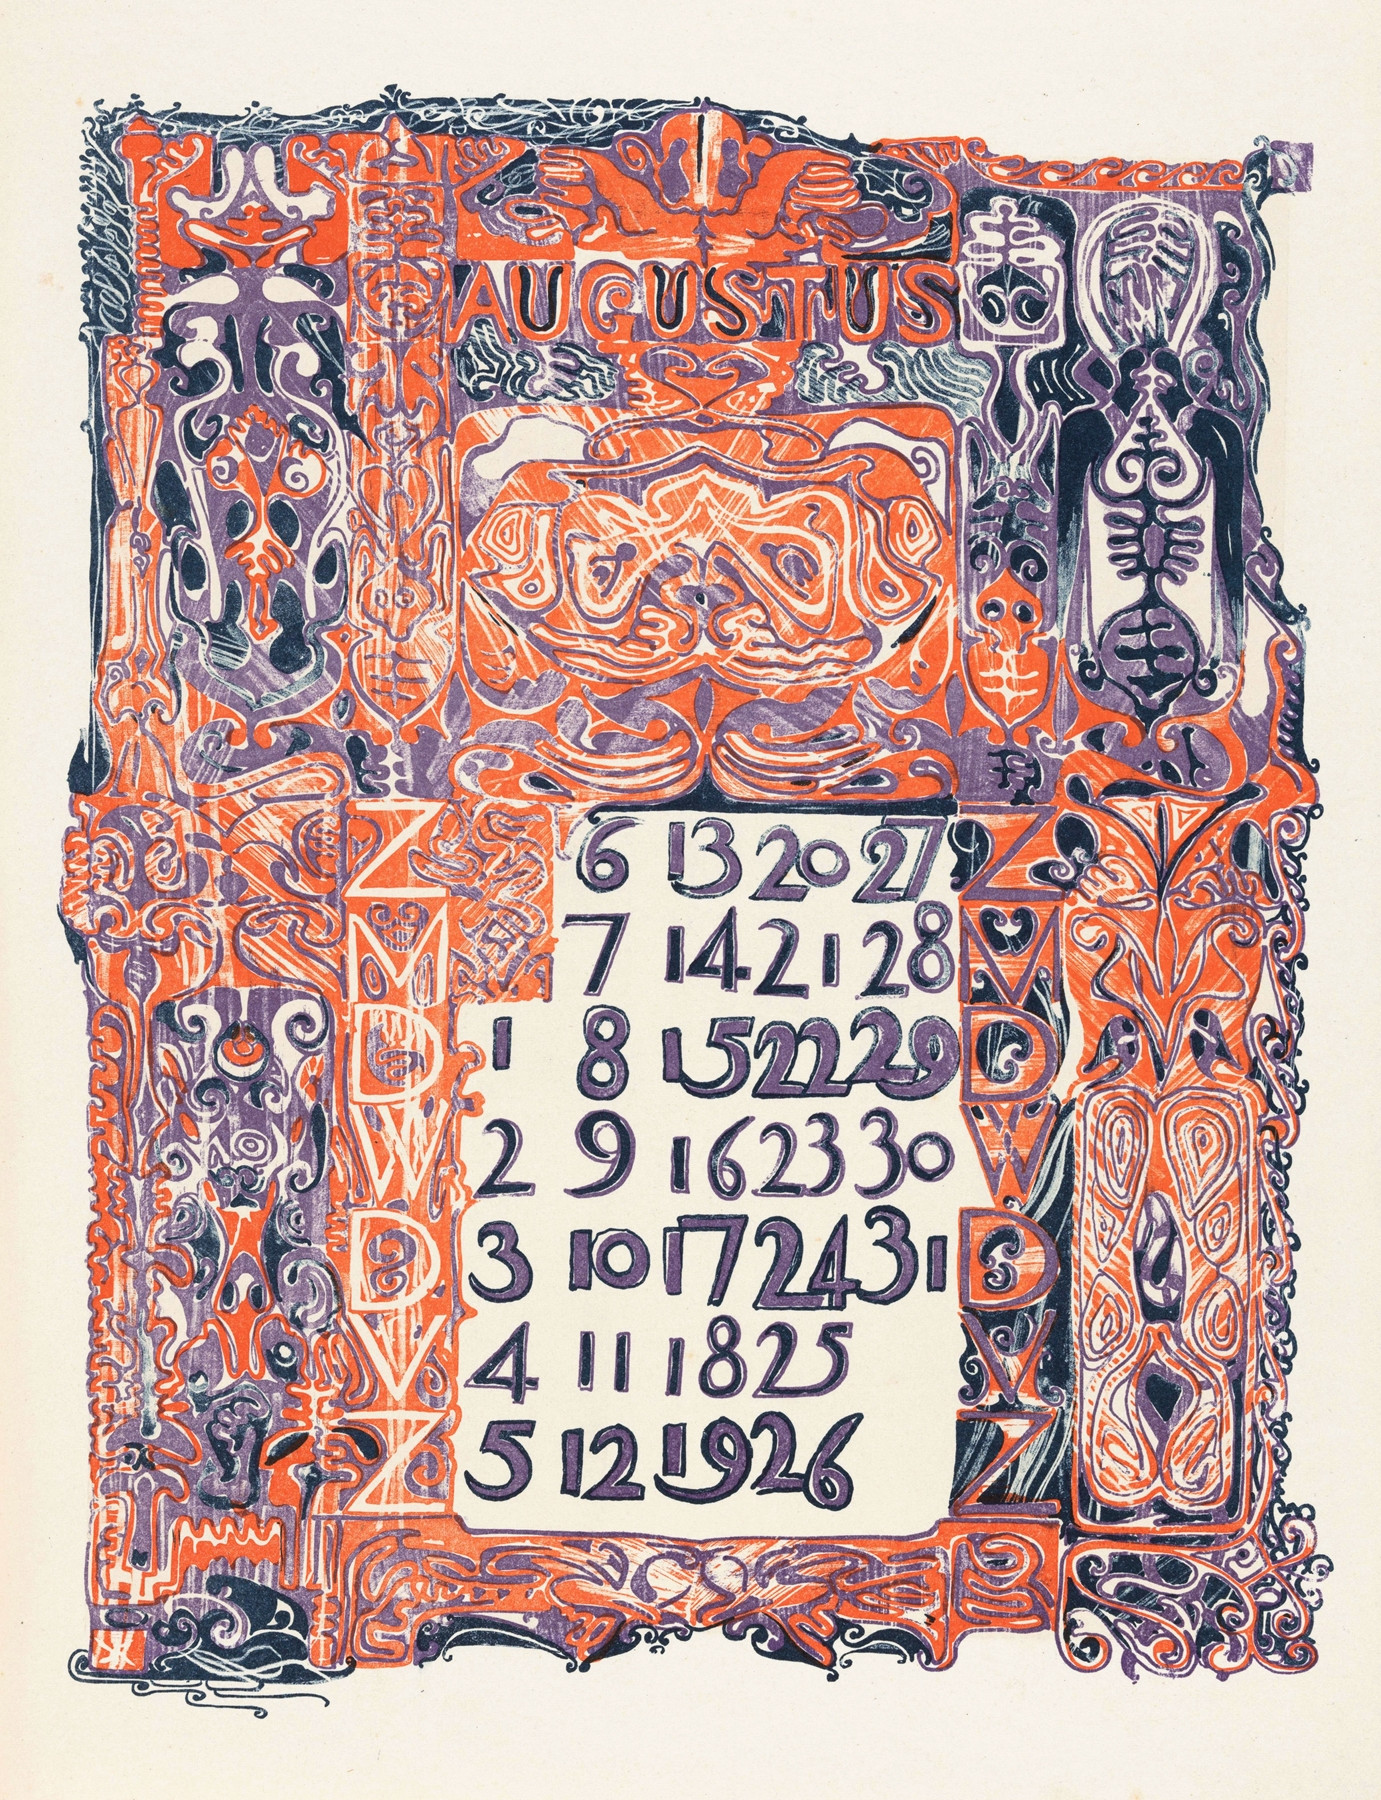 AUGUSTUS
Z 6 13 20 27 Z
M 7 14 21 28 M
D 1 8 15 22 29 D
W 2 9 16 23 30 W
D 3 10 17 24 31 D
V 4 11 18 25 V
Z 5 12 19 26 Z